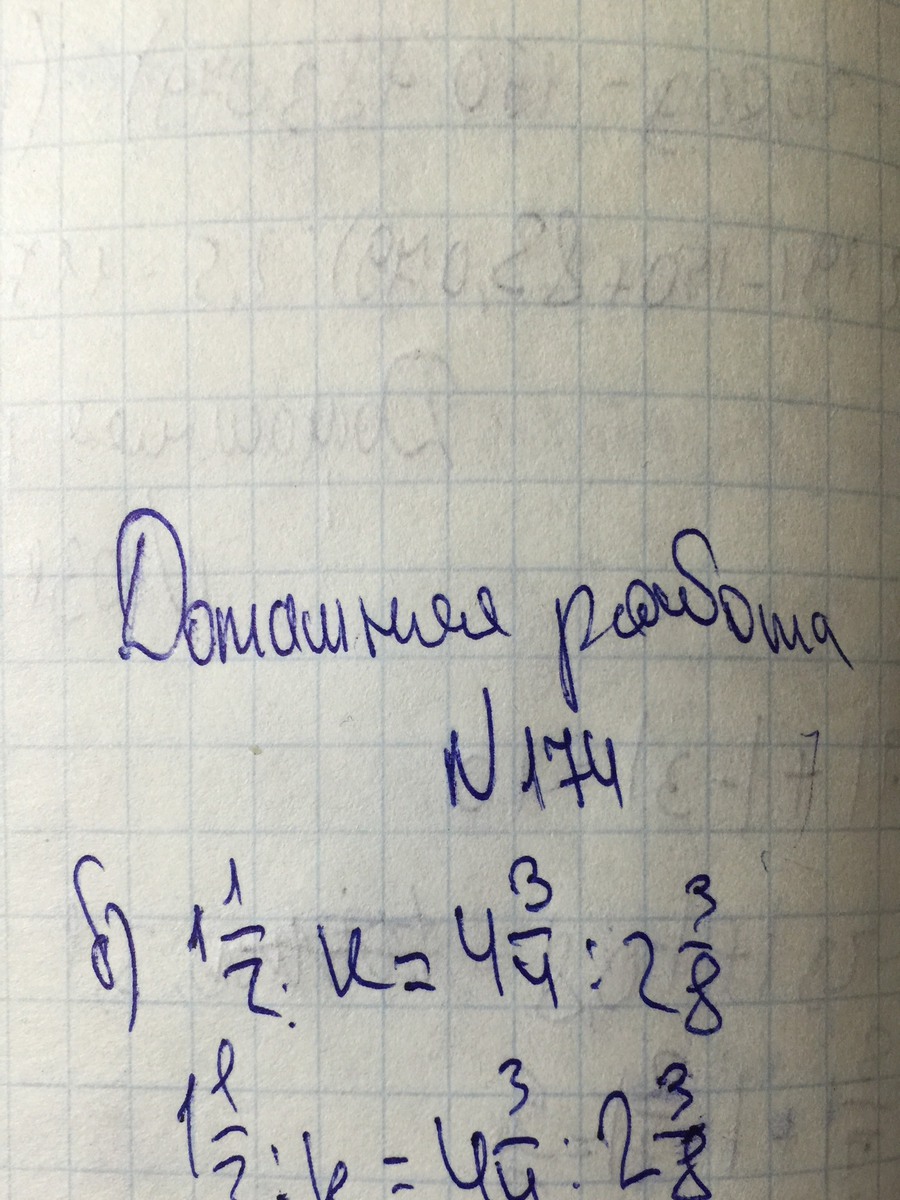 Домашняя работа
N 174
б) 1 1/2 : k = 4 3/4 : 2 3/8
1 1/2 : k = 4 3/4 : 2 3/8